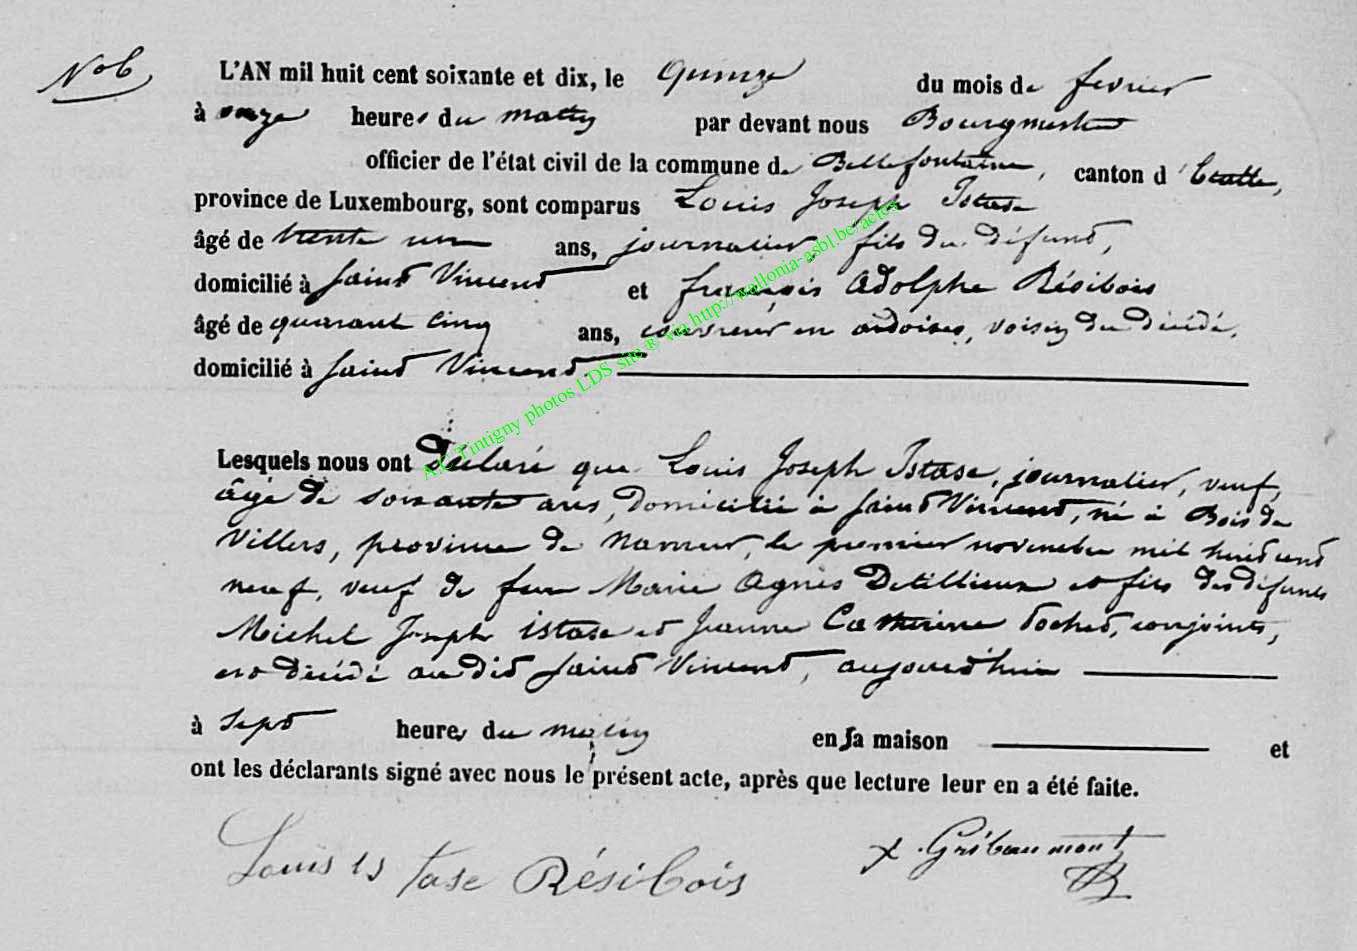 No 6
L'AN mil huit cent soixante et dix, le quinze du mois de fevrier
à onze heures du matin par devant nous Bourgmestre
officier de l'état civil de la commune de Bellefontaine, canton d'Etalle,
province de Luxembourg, sont comparus Louis Joseph Istase
âgé de trente un ans, journalier, fils du défunt,
domicilié à Saint Vincent et françois Adolphe Résibois
âgé de quarant cinq ans, couvreur en ardoises, voisin du décédé,
domicilié à Saint Vincent
A.C. Tintigny photos LDS site ® via http://wallonia-asbl.be/actes
Lesquels nous ont Déclaré que Louis Joseph Istase, journalier, veuf,
âgé de soixante ans, domicilié à Saint Vincent, né à Bois de
Villers, province de Namur, le premier novembre mil huit cent
neuf, veuf de feue Marie Agnès Detillieux et fils des défunts
Michel Joseph Istase et Jeanne Catherine Dochet, conjoints,
est décédé au dit Saint Vincent, aujourd'hui
à sept heures du matin en sa maison et
ont les déclarants signé avec nous le présent acte, après que lecture leur en a été faite.
Louis istase Résibois X. Gribaumont